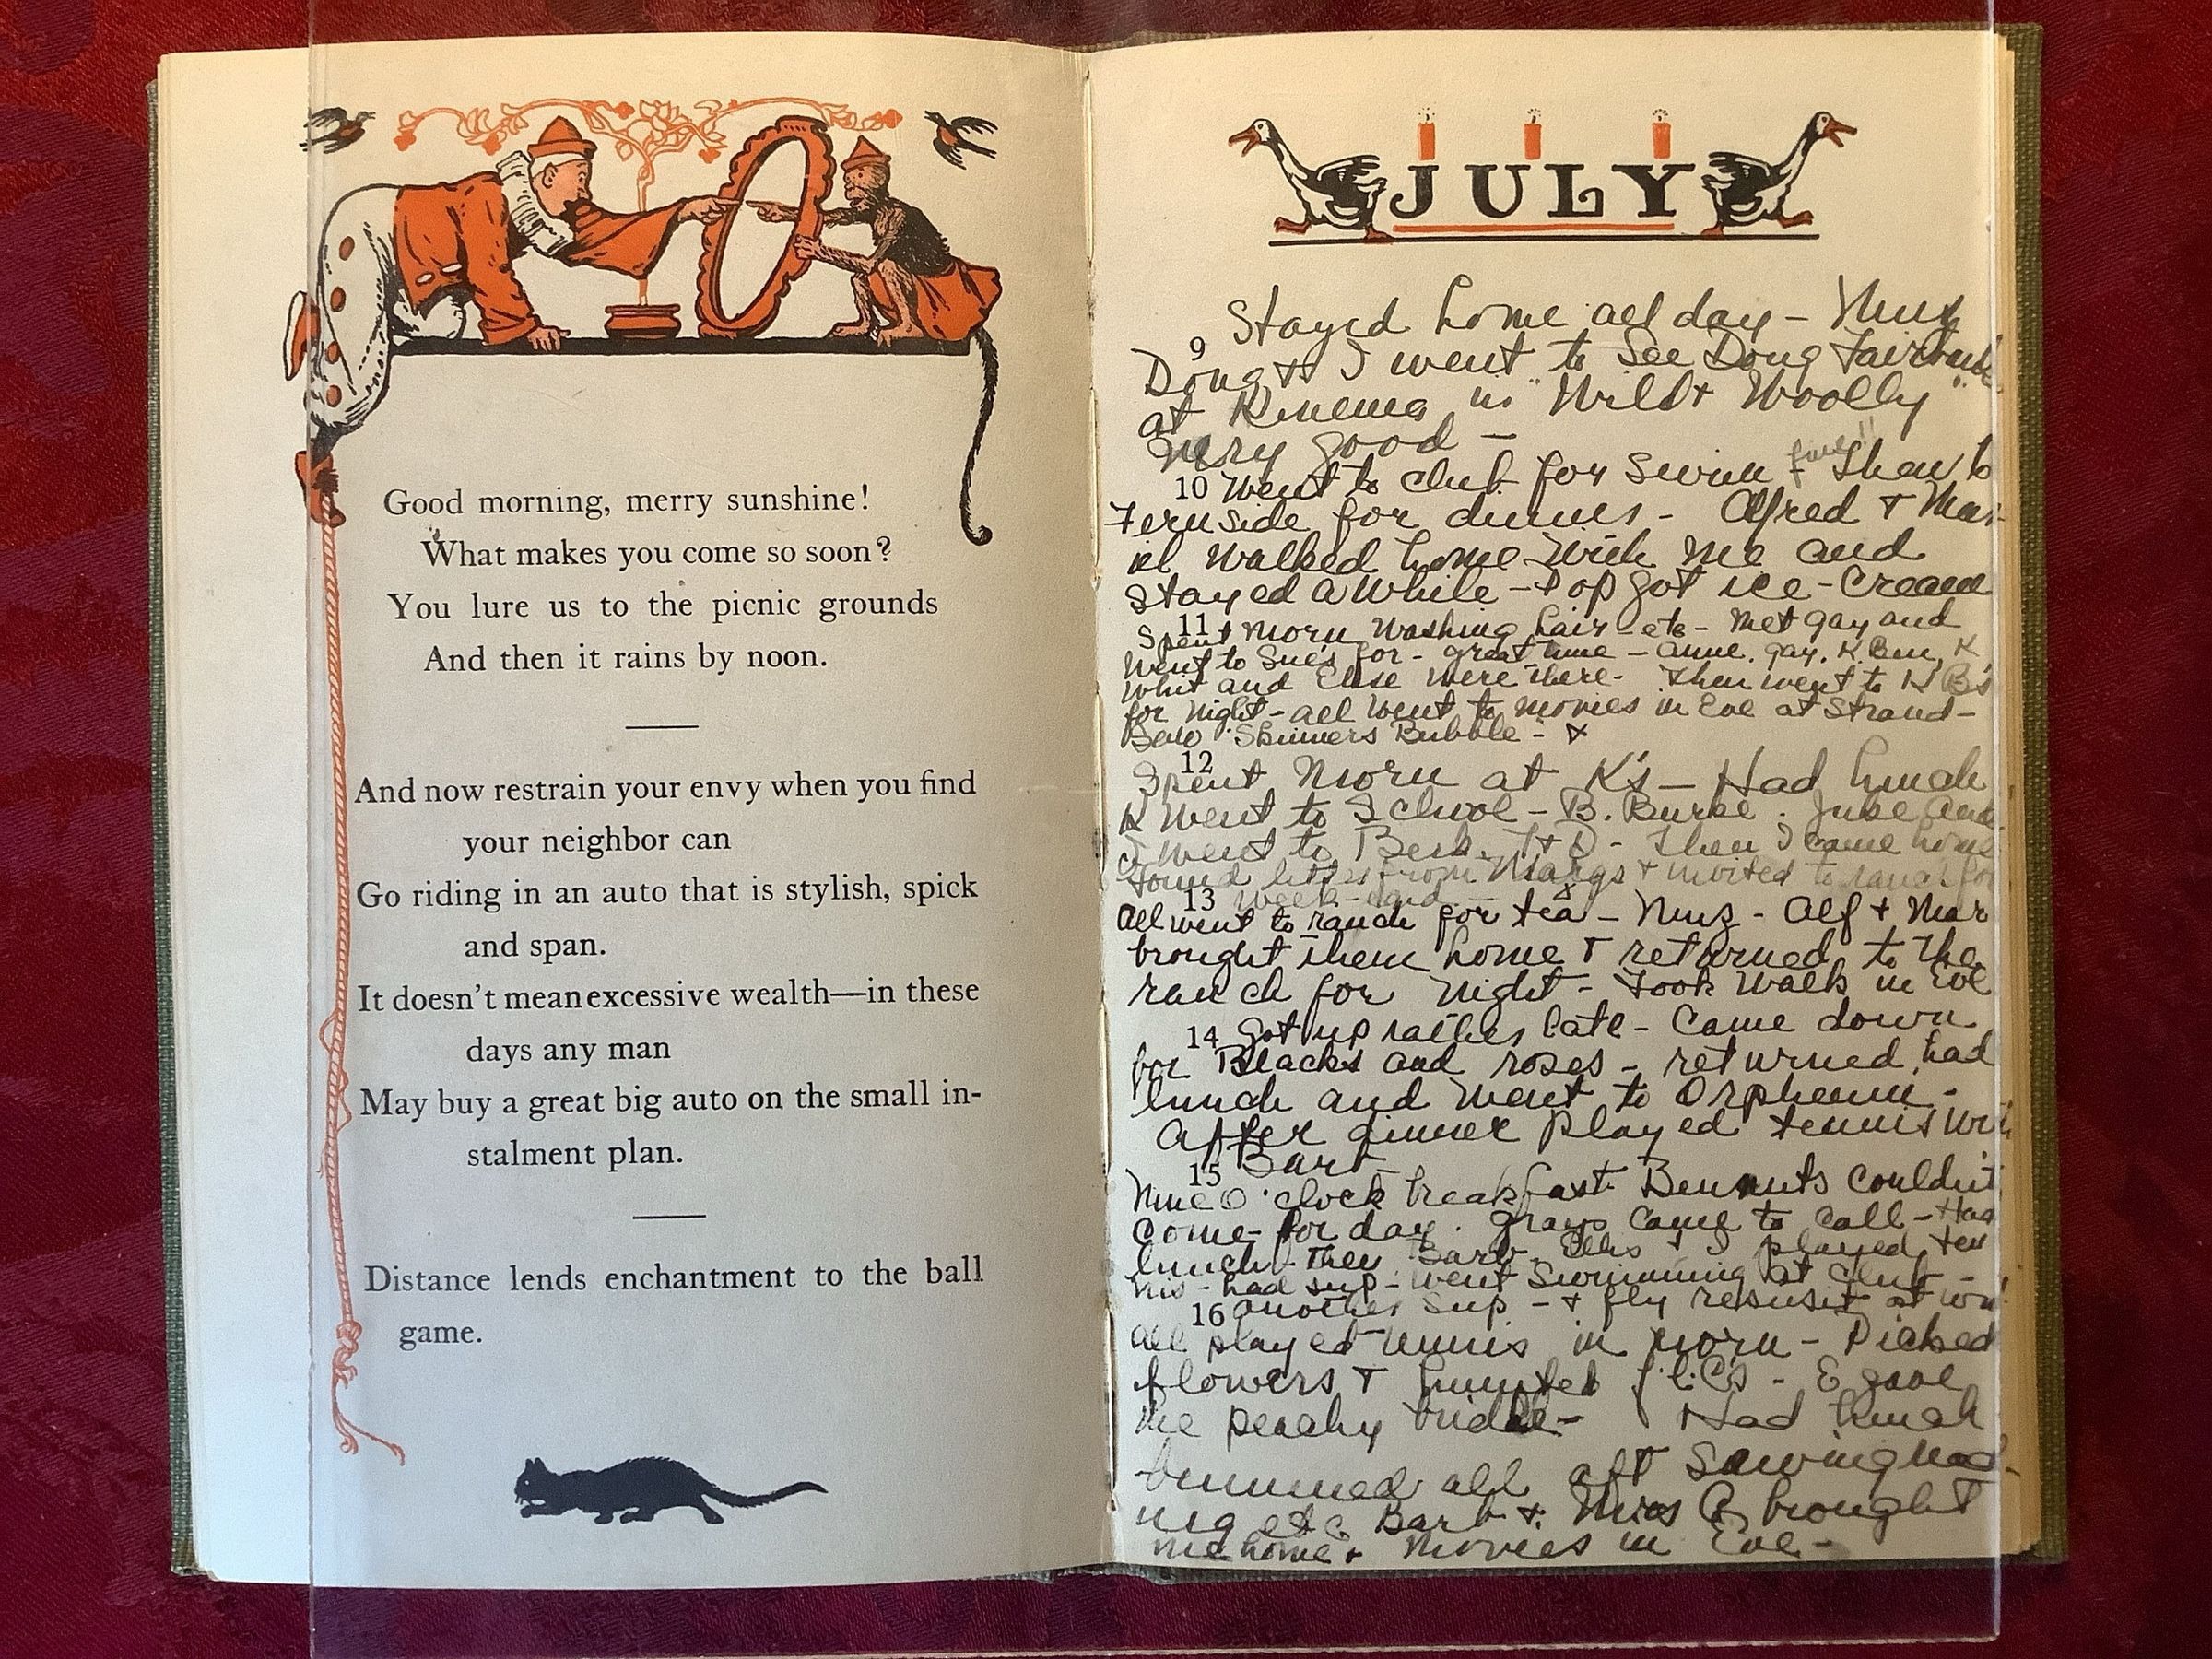 Good morning, merry sunshine!
What makes you come so soon?
You lure us to the picnic grounds
And then it rains by noon.
And now restrain your envy when you find
your neighbor can
Go riding in an auto that is stylish, spick
and span.
It doesn't mean excessive wealth—in these
days any man
May buy a great big auto on the small in-
stalment plan.
Distance lends enchantment to the ball
game.
JULY
Stayed home all day -
9
Doug & I went to see Doug Fairbanks
at Kinema in "Wild & Woolly"
Very good -
fine!!
10 Went to club for swim - Then to
Fernside for dinner - Alfred & Mar-
walked home with me and
stayed a while - Pop got ice-cream
11
Spent morn washing hair - etc - Met Gay and
went to Sue's for - great time - Anne, Gay, K. Ben, K
Whit and Elise were there - Then went to K B's
for night - all went to movies in Eve at Strand -
Saw Skinners Bubble -
12
Spent morn at K's - Had lunch
K went to School - B. Burke. June and
I went to Berk. T & D - Then I came home
found letter from Margs & invited to ranch for
week-end -
13
All went to ranch for tea - - Alf & Mar
brought them home & returned to the
ranch for night - Took walk in Eve
14 Got up rather late - Came down
for Blacks and roses - returned, had
lunch and went to Orpheum -
After dinner played tennis with
Barb
15
Nine o'clock breakfast Bennetts couldn't
come for day. Grays came to call - Had
lunch then Barb. Ellis & I played ten
nis - had sup - went swimming at club -
16 another sup - & fly at
all played tennis in morn - Picked
flowers & hunted - E gave
the peachy - Had lunch
bummed all aft sewing
etc Barb & brought
me home & Movies in Eve -